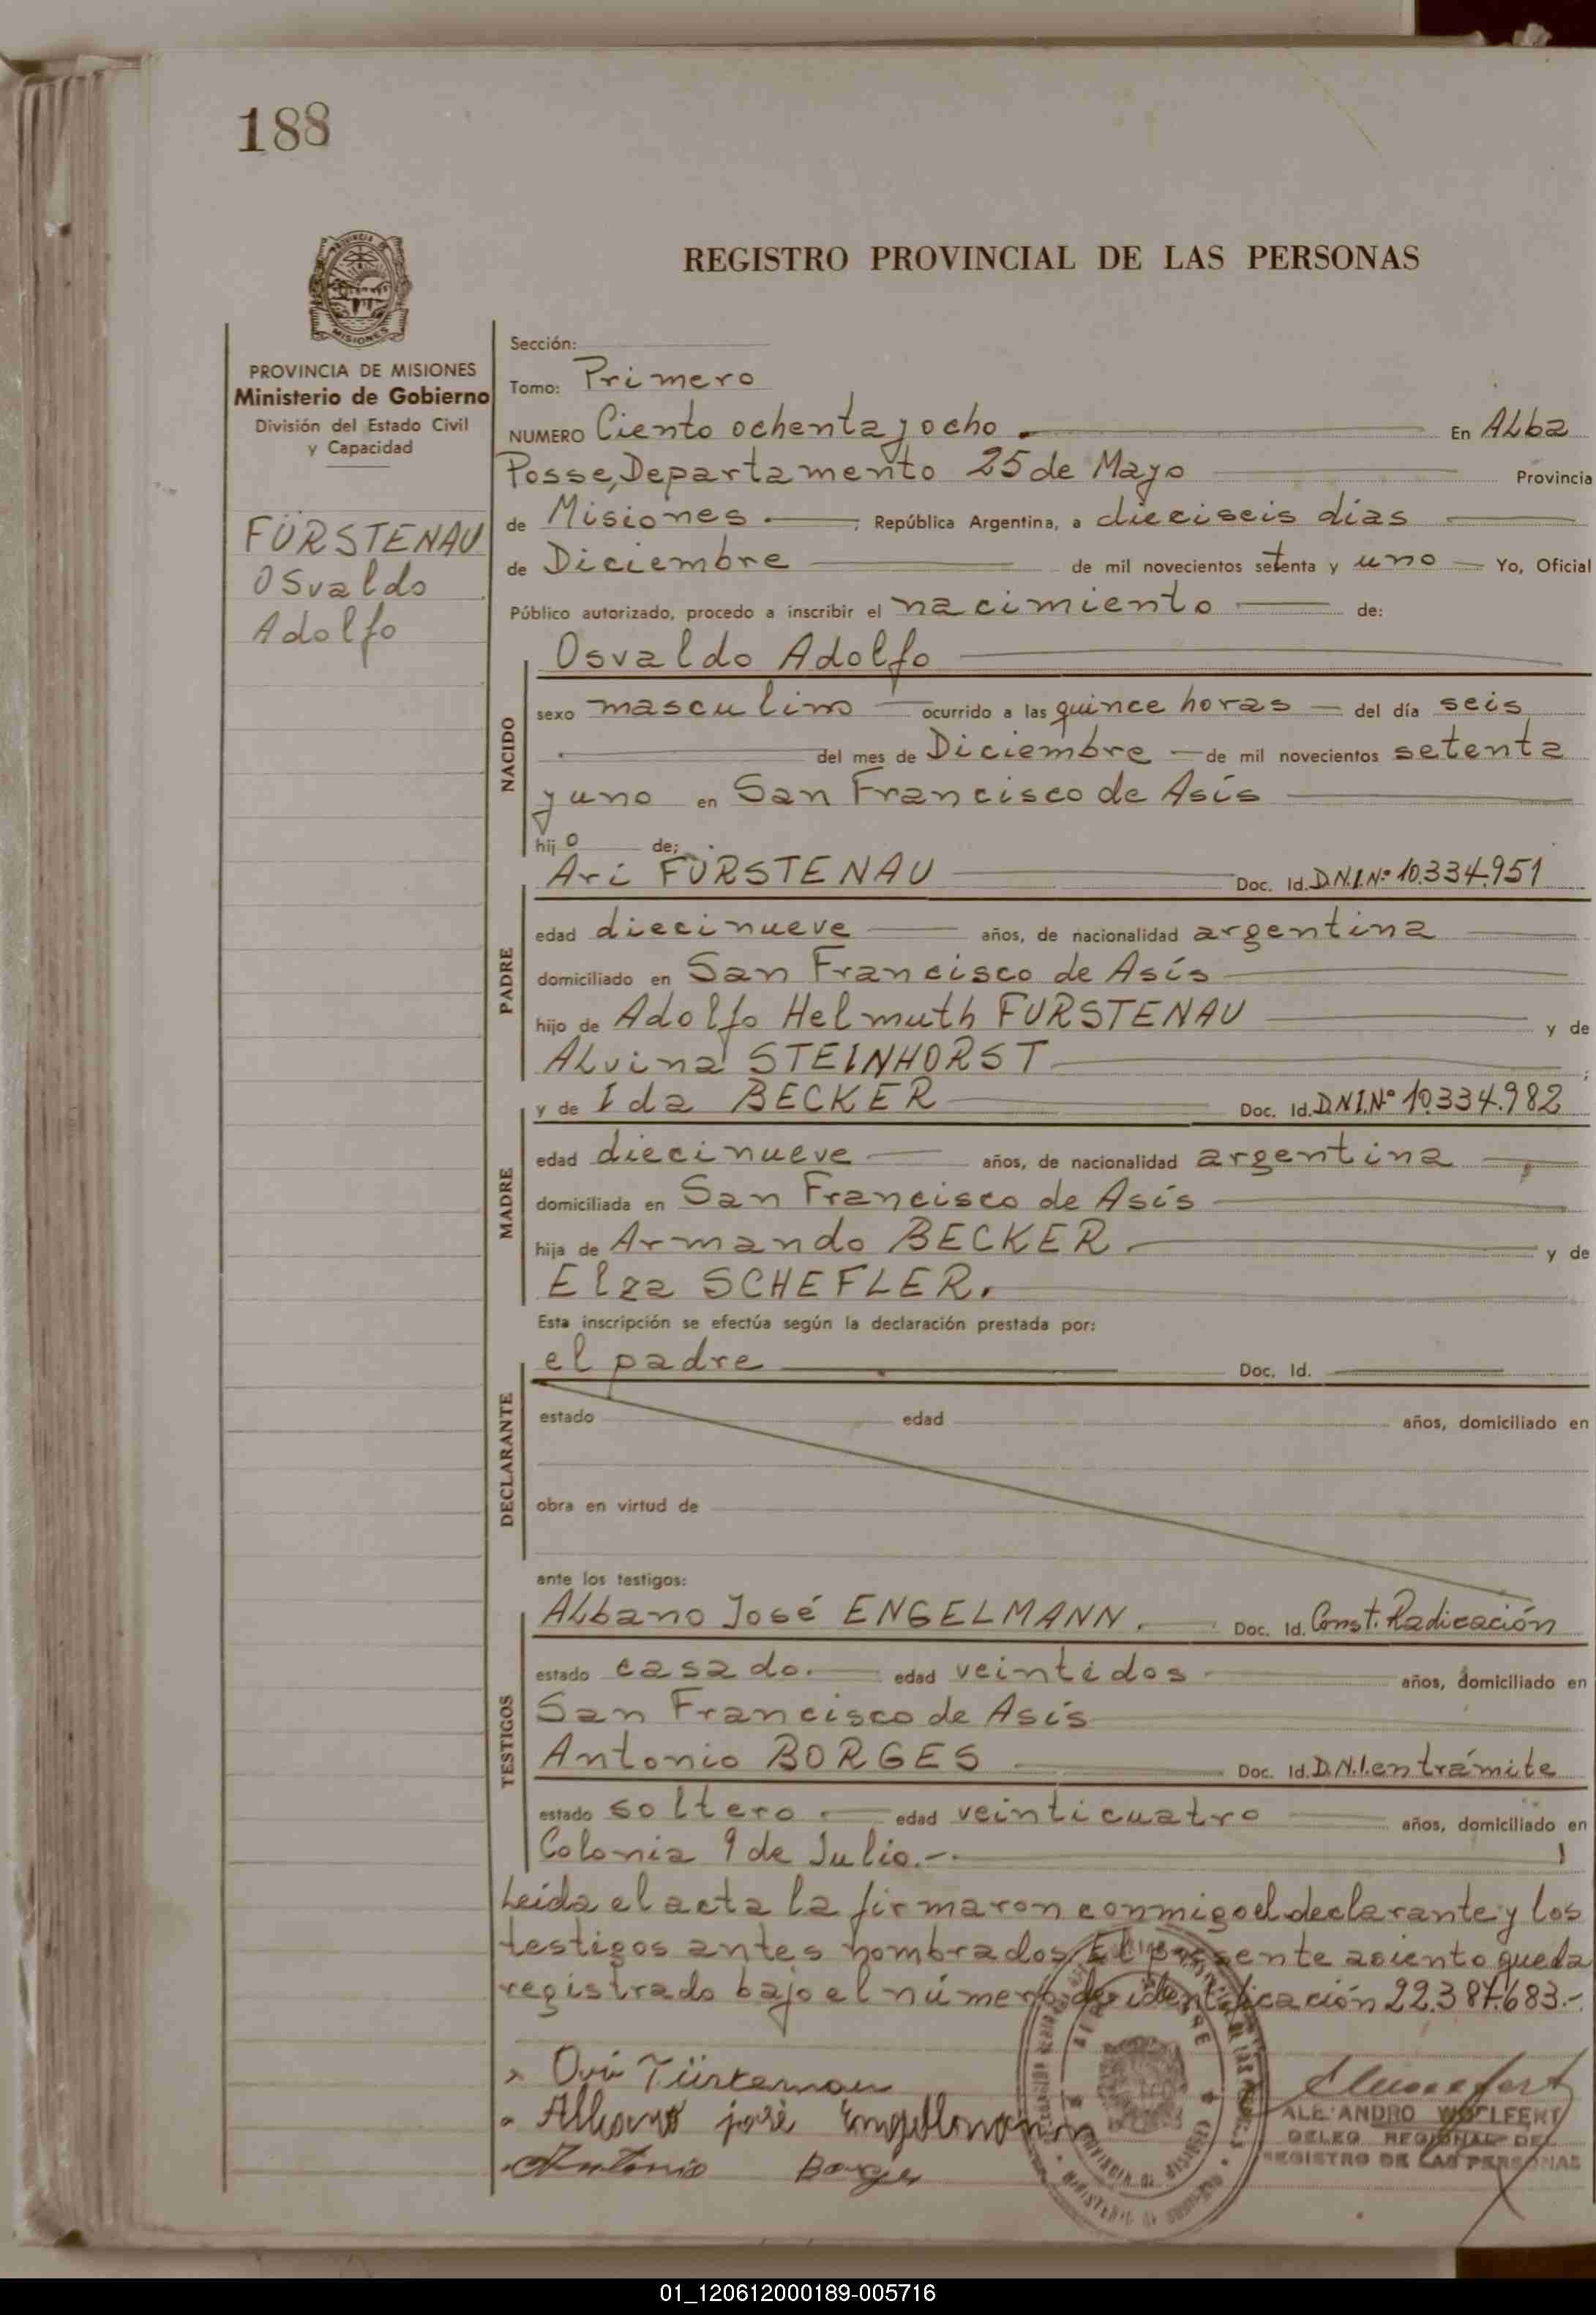 188
REGISTRO PROVINCIAL DE LAS PERSONAS
MISIONES
PROVINCIA DE MISIONES
Ministerio de Gobierno
División del Estado Civil
y Capacidad
FÜRSTENAU
Osvaldo
Adolfo
Sección:
Tomo: Primero
NUMERO Ciento ochenta y ocho. En Alba
Posse, Departamento 25 de Mayo Provincia
de Misiones.; República Argentina, a dieciseis días
de Diciembre de mil novecientos setenta y uno Yo, Oficial
Público autorizado, procedo a inscribir el nacimiento de:
NACIDO
Osvaldo Adolfo
sexo masculino ocurrido a las quince horas del día seis
del mes de Diciembre de mil novecientos setenta
y uno en San Francisco de Asís
hijo de;
PADRE
Ari FÜRSTENAU Doc. Id. D.N.I.Nº 10.334.951
edad diecinueve años, de nacionalidad argentina
domiciliado en San Francisco de Asís
hijo de Adolfo Helmuth FURSTENAU y de
Alvina STEINHORST ;
MADRE
y de Ida BECKER Doc. Id. D.N.I.Nº 10.334.982
edad diecinueve años, de nacionalidad argentina
domiciliada en San Francisco de Asís
hija de Armando BECKER. y de
Elza SCHEFLER.
Esta inscripción se efectúa según la declaración prestada por:
DECLARANTE
el padre Doc. Id.
estado edad años, domiciliado en
obra en virtud de
ante los testigos:
TESTIGOS
Albano José ENGELMANN. Doc. Id. Const. Radicación
estado casado. edad veintidos años, domiciliado en
San Francisco de Asís
Antonio BORGES Doc. Id. D.N.I. en trámite
estado soltero. edad veinticuatro años, domiciliado en
Colonia 9 de Julio.-.
Leida el acta la firmaron conmigo el declarante y los
testigos antes nombrados. El presente asiento queda
registrado bajo el número de identificación 22.387.683.-
Albano josé Engelmann
Antonio Borges
ALEJANDRO WOLFERT
DELEG REGIONAL DEL
REGISTRO DE LAS PERSONAS
01_120612000189-005716